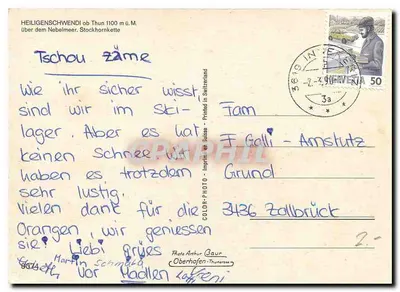 HEILIGENSCHWENDI ob Thun 1100 m ü. M.
über dem Nebelmeer. Stockhornkette
Tschou zäme
Wie ihr sicher wisst
sind wir im Ski-
lager. Aber es hat
keinen Schnee. Wir
haben es trotzdem
sehr lustig.
Vielen dank für die
Orangen, wir geniessen
sie! Liebi grües
Martin Schmid
vor Madlen
Vreni
COLOR-PHOTO - Imprimé en Suisse - Printed in Switzerland
Photo Arthur Baur
Oberhofen-Thunersee
HELVETIA 50
3a
Fam
F. Galli - Amstutz
Grund
3436 Zollbrück
2.-
CPARAMA.COM